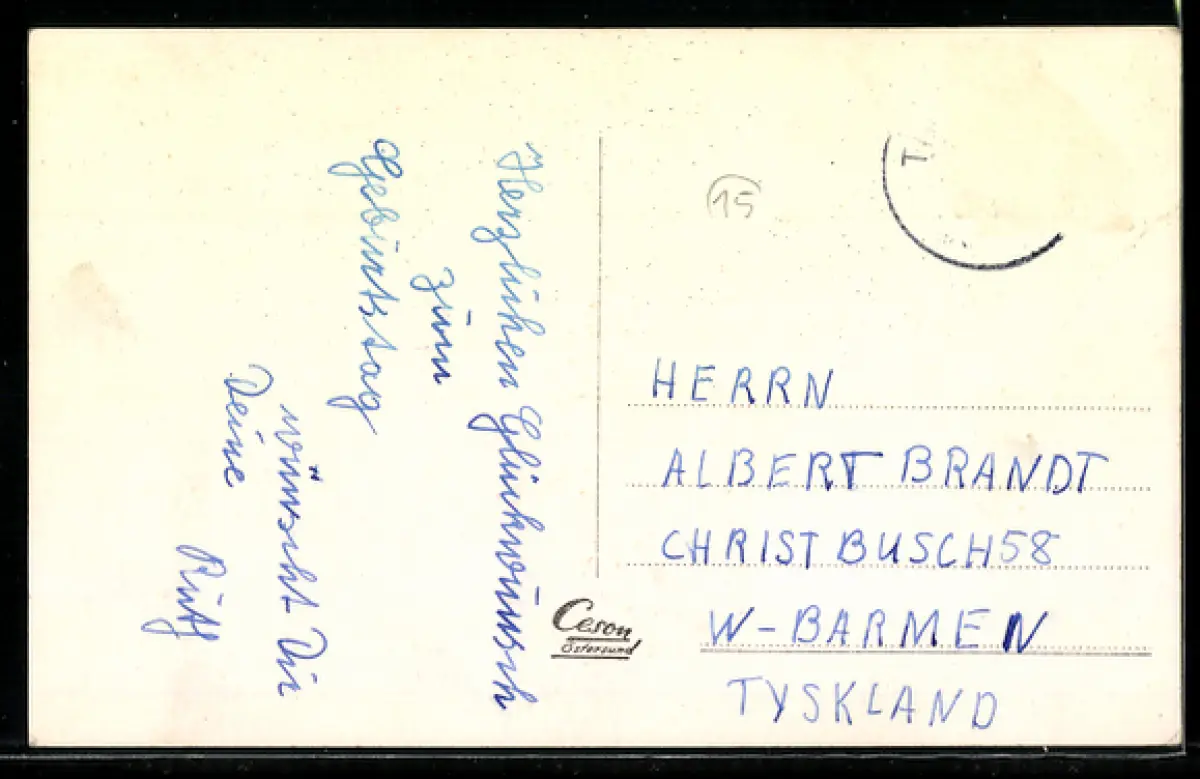 Herzlichen Glückwunsch
zum
Geburtstag
wünscht Dir
Deine
Ruth
15
HERRN
ALBERT BRANDT
CHRISTBUSCH 58
W-BARMEN
TYSKLAND
Ceson
Östersund